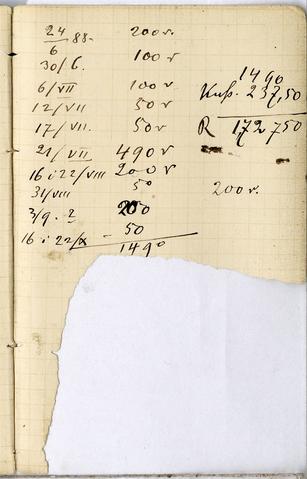 24/6 88. 200 r.
30/6. 100 r
6/VII 100 r
12/VII 50 r
17/VII. 50 r
21/VII 490 r
16 i 22/VIII 200 r
31/VIII 50
3/9. 2 250
16 i 22/X - 50
1490
1490
237,50
R 1727 50
200 r.